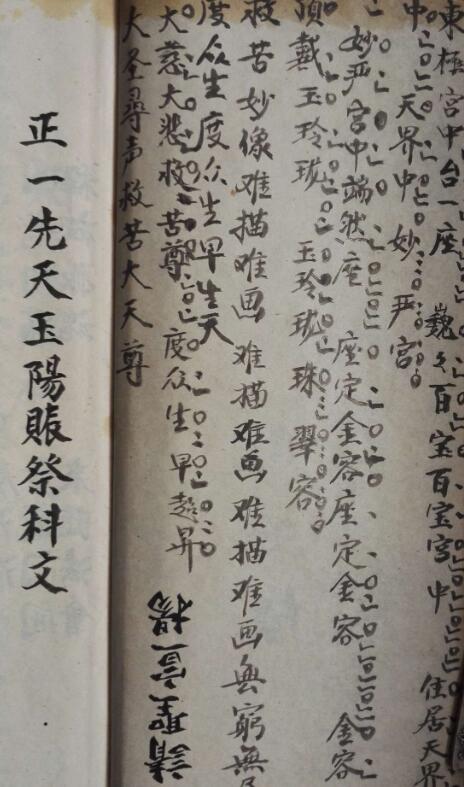 東極宮中台一座 巍々百宝百宝宮中 住居天界
中 天界中妙严宮
妙严宮中端然座 座定金容座定金容 金容
頂戴玉玲珑 玉玲珑珠翠容
救苦妙像难描难画难描难画难描难画無窮無
度众生度众生早生天
大慈大悲救苦尊 度众生早超昇
大圣尋声救苦大天尊
請聖宣揚
正一先天玉陽賬祭科文